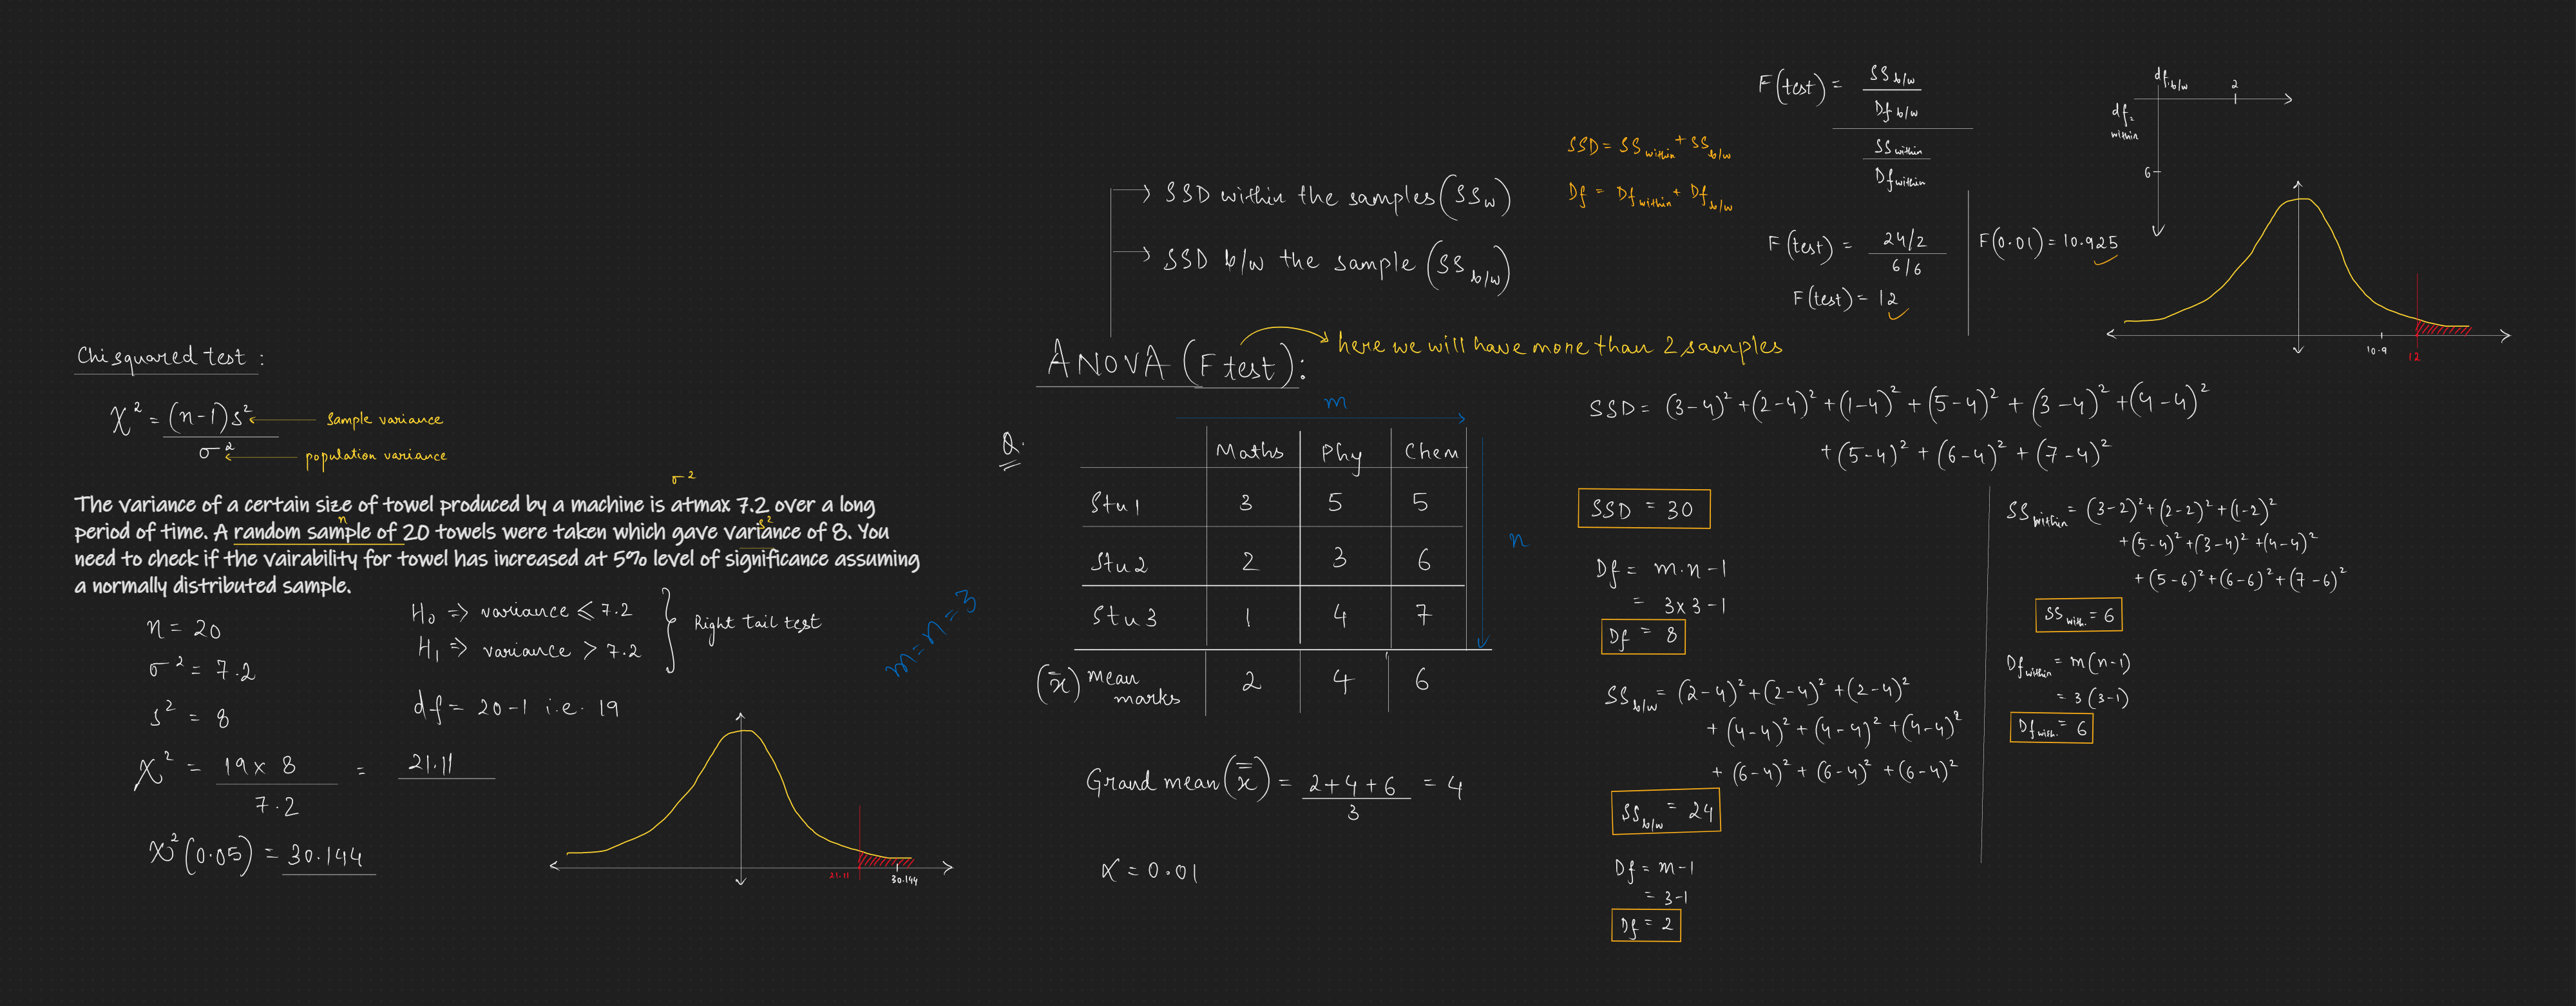 Chi squared test :
χ² = (n-1)s² / σ²
Sample variance
population variance
σ²
The variance of a certain size of towel produced by a machine is atmax 7.2 over a long
period of time. A random sample of 20 towels were taken which gave variance of 8. You
n
s²
need to check if the vairability for towel has increased at 5% level of significance assuming
a normally distributed sample.
n = 20
σ² = 7.2
s² = 8
H₀ => variance ≤ 7.2
H₁ => variance > 7.2
Right tail test
df = 20-1 i.e. 19
χ² = 19 x 8 / 7.2 = 21.11
χ²(0.05) = 30.144
21.11
30.144
m=n=3
→ SSD within the samples (SS_w)
→ SSD b/w the sample (SS_b/w)
ANOVA (F test) :
here we will have more than 2 samples
m
n
Q.
Maths Phy Chem
Stu1 3 5 5
Stu2 2 3 6
Stu3 1 4 7
(x̄) mean marks 2 4 6
Grand mean (x̿) = 2+4+6 / 3 = 4
α = 0.01
SSD = SS_within + SS_b/w
Df = Df_within + Df_b/w
F(test) = SS_b/w / Df_b/w / SS_within / Df_within
F(test) = 24/2 / 6/6
F(test) = 12
F(0.01) = 10.925
df₁ b/w
2
df₂ within
6
10.9
12
SSD = (3-4)² + (2-4)² + (1-4)² + (5-4)² + (3-4)² + (4-4)²
+ (5-4)² + (6-4)² + (7-4)²
SSD = 30
Df = m.n-1
= 3x3-1
Df = 8
SS_b/w = (2-4)² + (2-4)² + (2-4)²
+ (4-4)² + (4-4)² + (4-4)²
+ (6-4)² + (6-4)² + (6-4)²
SS_b/w = 24
Df = m-1
= 3-1
Df = 2
SS_within = (3-2)² + (2-2)² + (1-2)²
+ (5-4)² + (3-4)² + (4-4)²
+ (5-6)² + (6-6)² + (7-6)²
SS_with. = 6
Df_within = m(n-1)
= 3(3-1)
Df_with. = 6